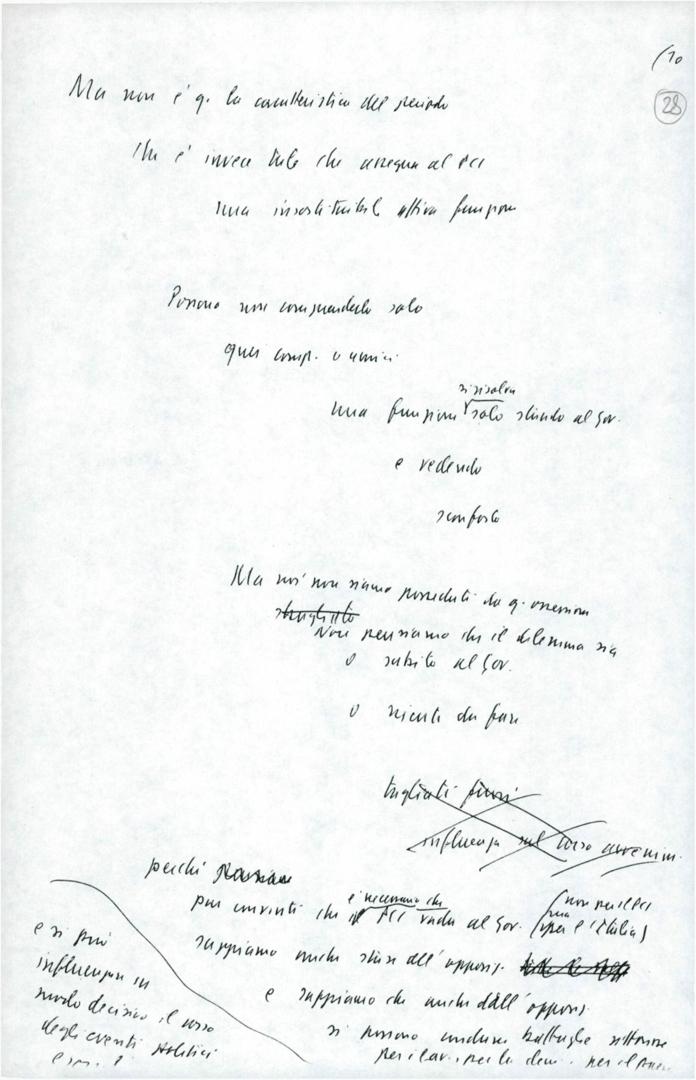 (10
28
Ma non è q. la caratteristica del periodo
che è invece tale che assegna al PCI
una insostituibile attiva funzione
Possono non comprenderlo solo
quei comp. o amici
si risolva
una funzione solo stando al Gov.
e vedendo
sconforto
Ma noi non siamo posseduti da q. ossessione
sbagliato
Noi pensiamo che il dilemma sia
o subito al Gov.
o niente da fare
tagliati fuori
influenza sul corso avvenim.
perché
è necessario che (non per il PCI
pur convinti che il PCI vada al Gov. ma per l'Italia)
sappiamo anche stare all'opposiz.
e sappiamo che anche dall'opposiz.
si possono condurre battaglie vittoriose
per il lav., per la dem., per il
e si può
influenzare in
modo decisivo il corso
degli eventi politici